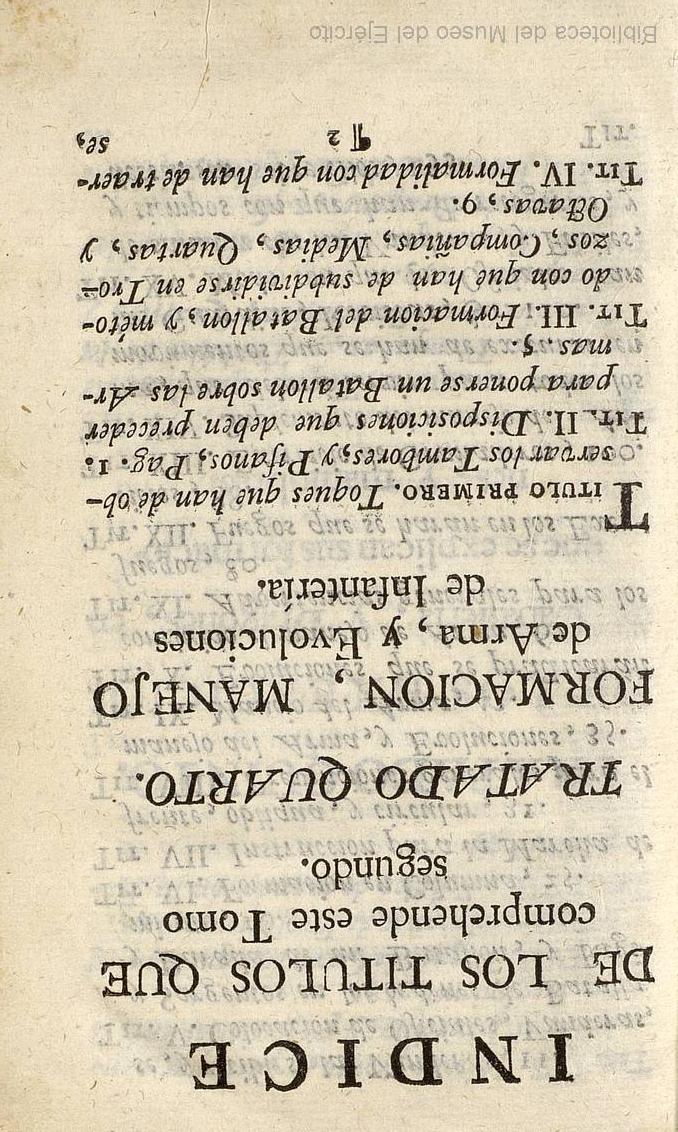 INDICE
DE LOS TITULOS QUE
comprehende este Tomo
segundo.
TRATADO QUARTO.
FORMACION, MANEJO
de Arma, y Evoluciones
de Infantería.
TITULO PRIMERO. Toques que han de ob-
servar los Tambores, y Pifanos, Pag. 1.
TIT. II. Disposiciones que deben preceder
para ponerse un Batallon sobre las Ar-
mas. 5.
TIT. III. Formacion del Batallon, y méto-
do con que han de subdividirse en Tro-
zos, Compañias, Medias, Quartas, y
Octavas, 9.
TIT. IV. Formalidad con que han de traer-
¶ 2 se,
Biblioteca del Museo del Ejército